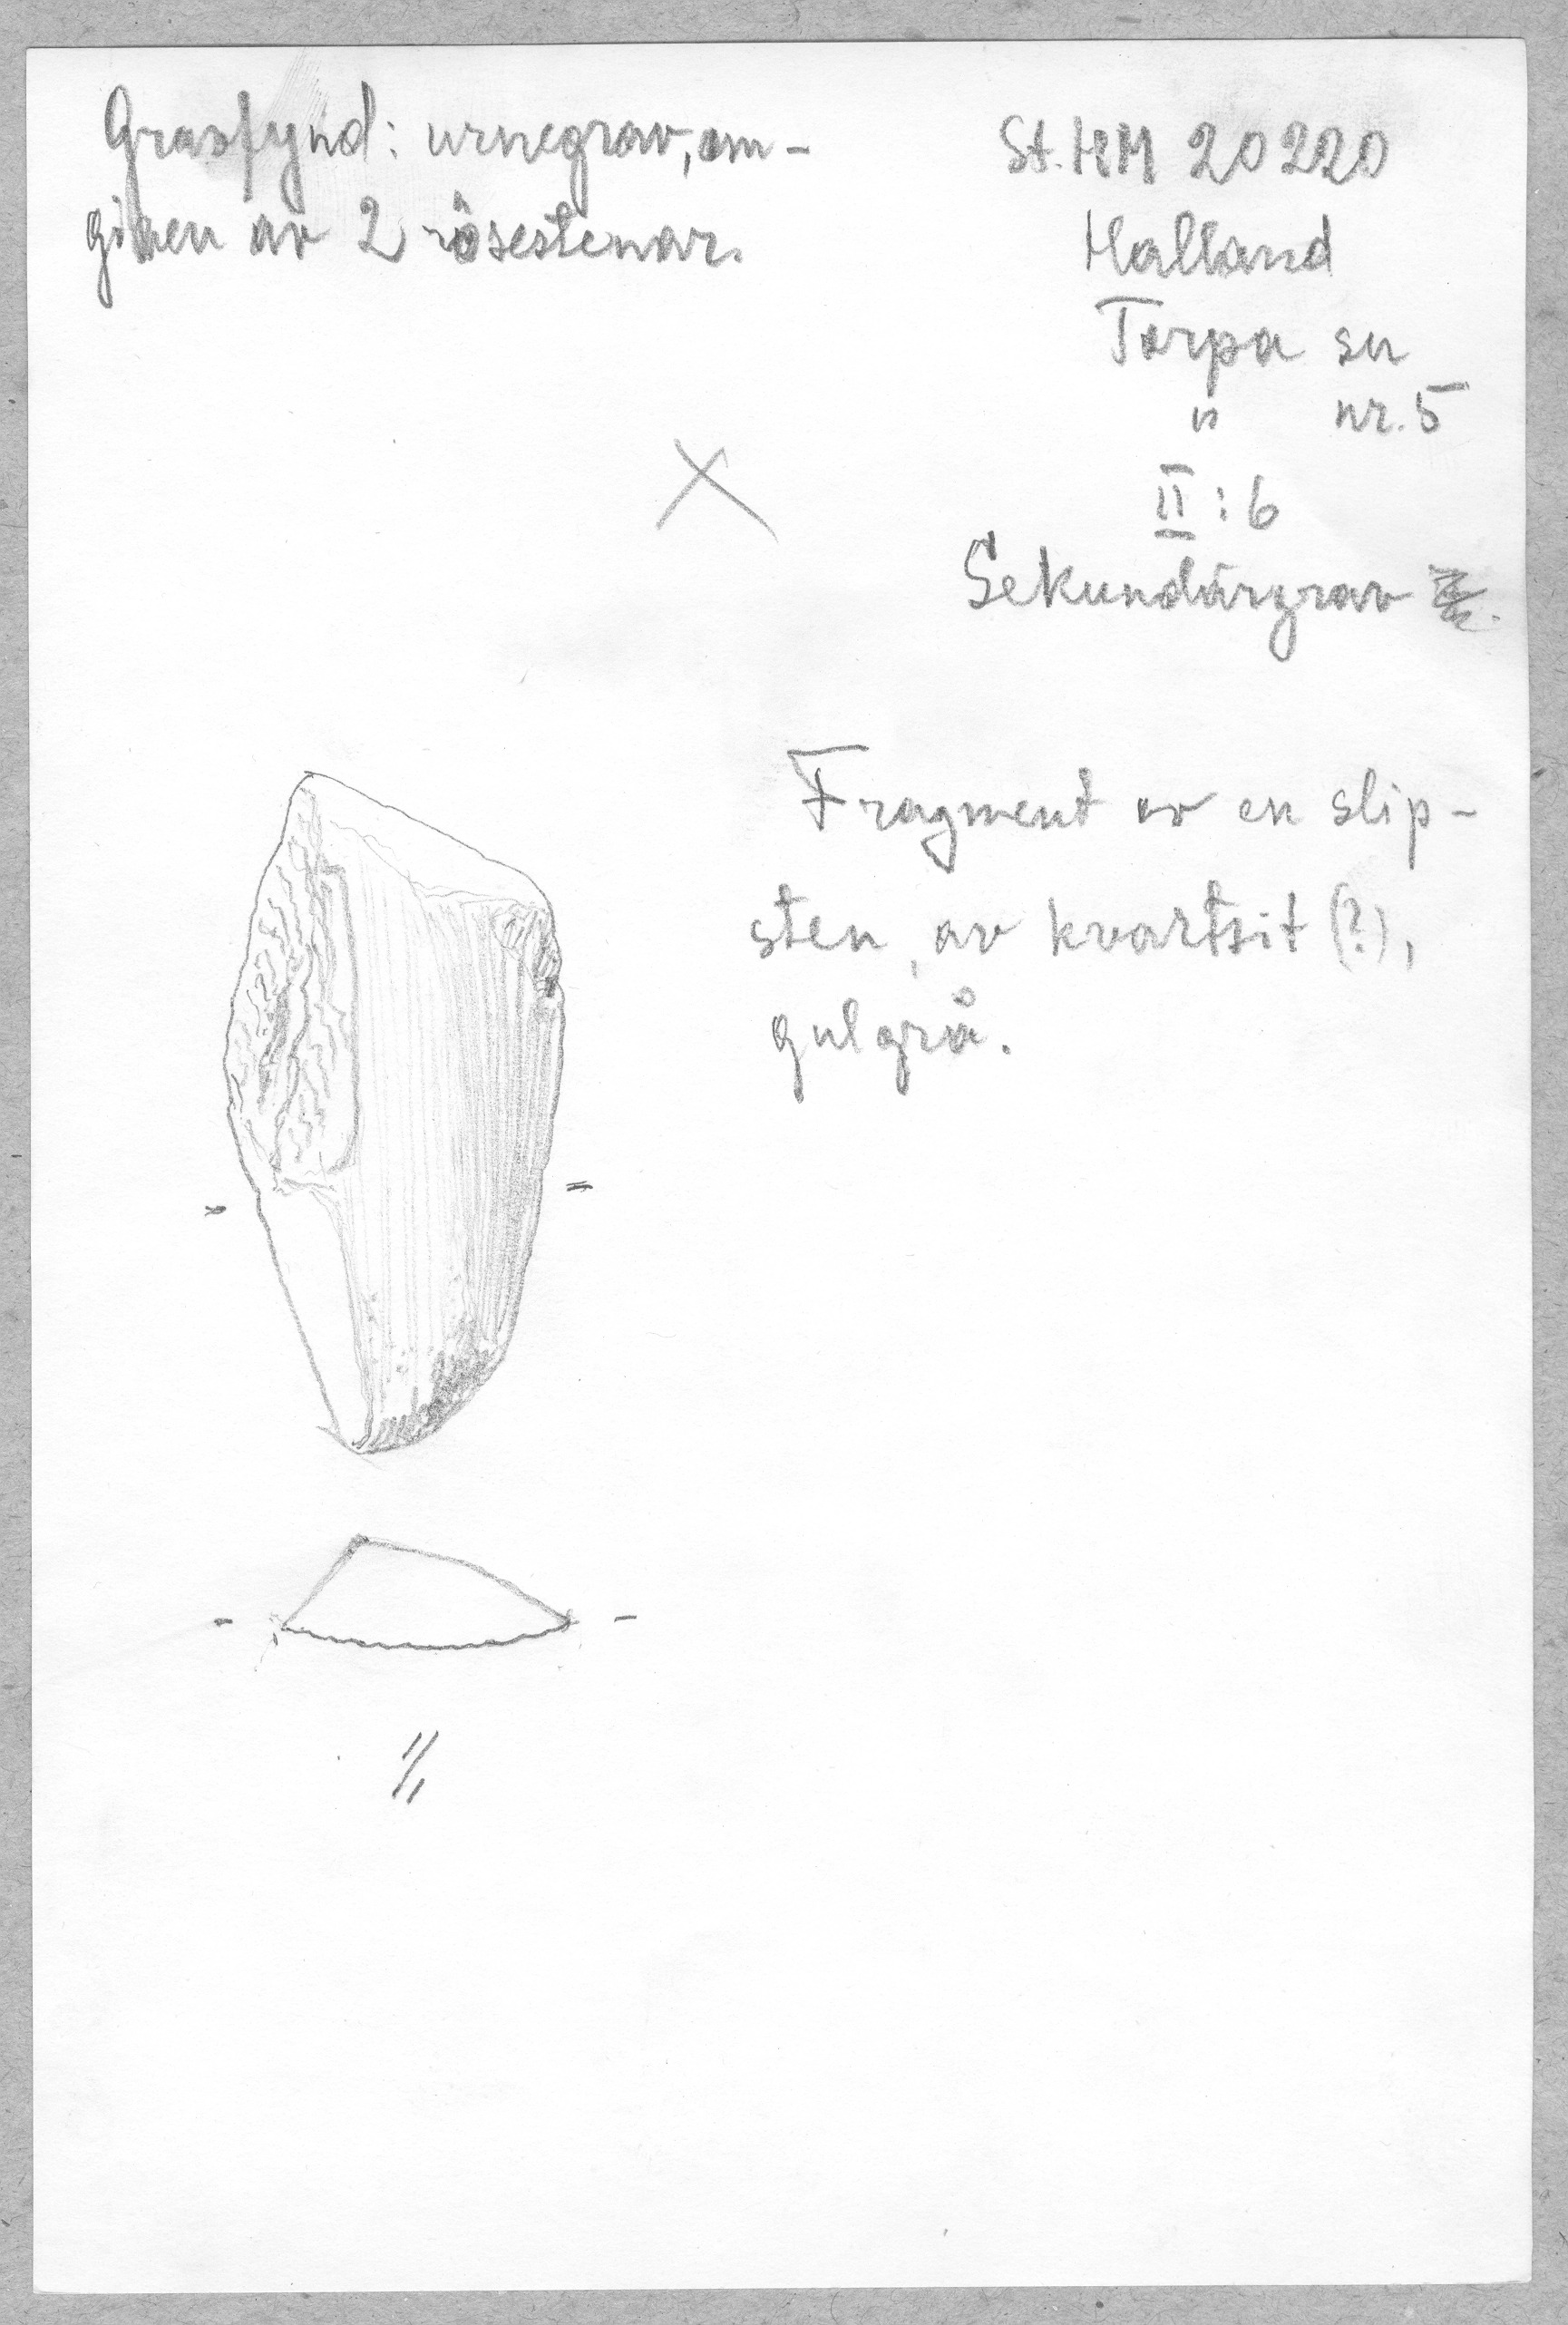 Gravfynd: urnegrav, om-
given av 2 rösestenar.
St. HM 20220
Halland
Torpa sn
" nr. 5
II : 6
Sekundärgrav
Fragment av en slip-
sten, av kvartsit (?),
gulgrå.
1/1